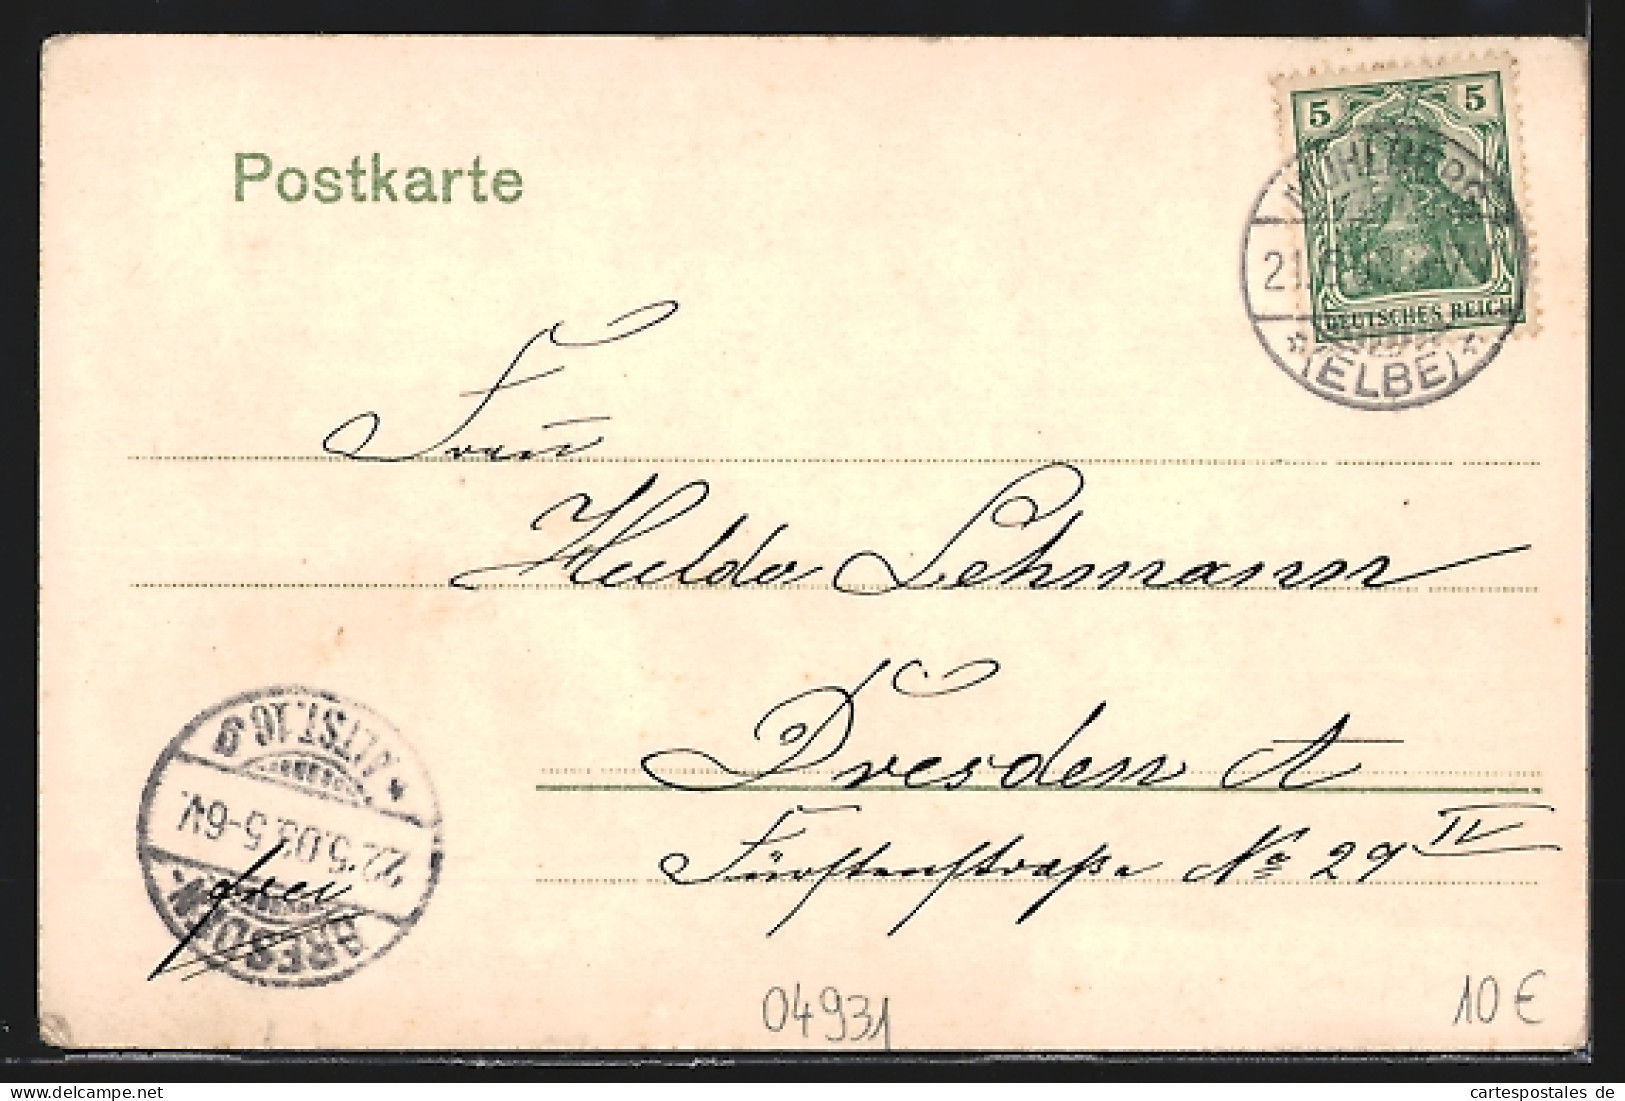 Postkarte
5 5
MÜHLBERG
21.5.03.
DEUTSCHES REICH
* (ELBE) *
Frau
Hulda Lehmann
Dresden A
Fürstenstraße No 29 IV
* ALTST. 16 g
22.5.03.5-6V.
DRESDEN
frei
04931
10 €
cartespostales de